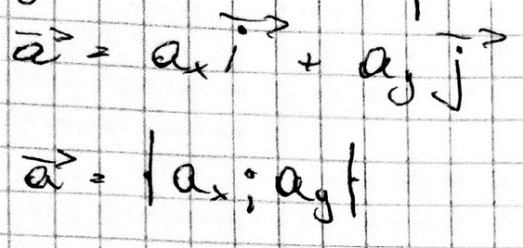 a⃗ = aₓ i⃗ + aᵧ j⃗
a⃗ = {aₓ; aᵧ}